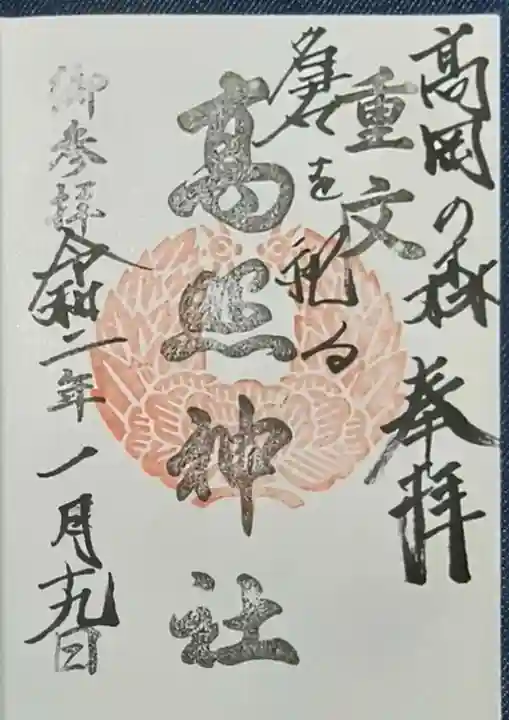 髙岡の森 奉拝
重文
名君を祀る
高照神社
御参拝 令和二年一月十九日